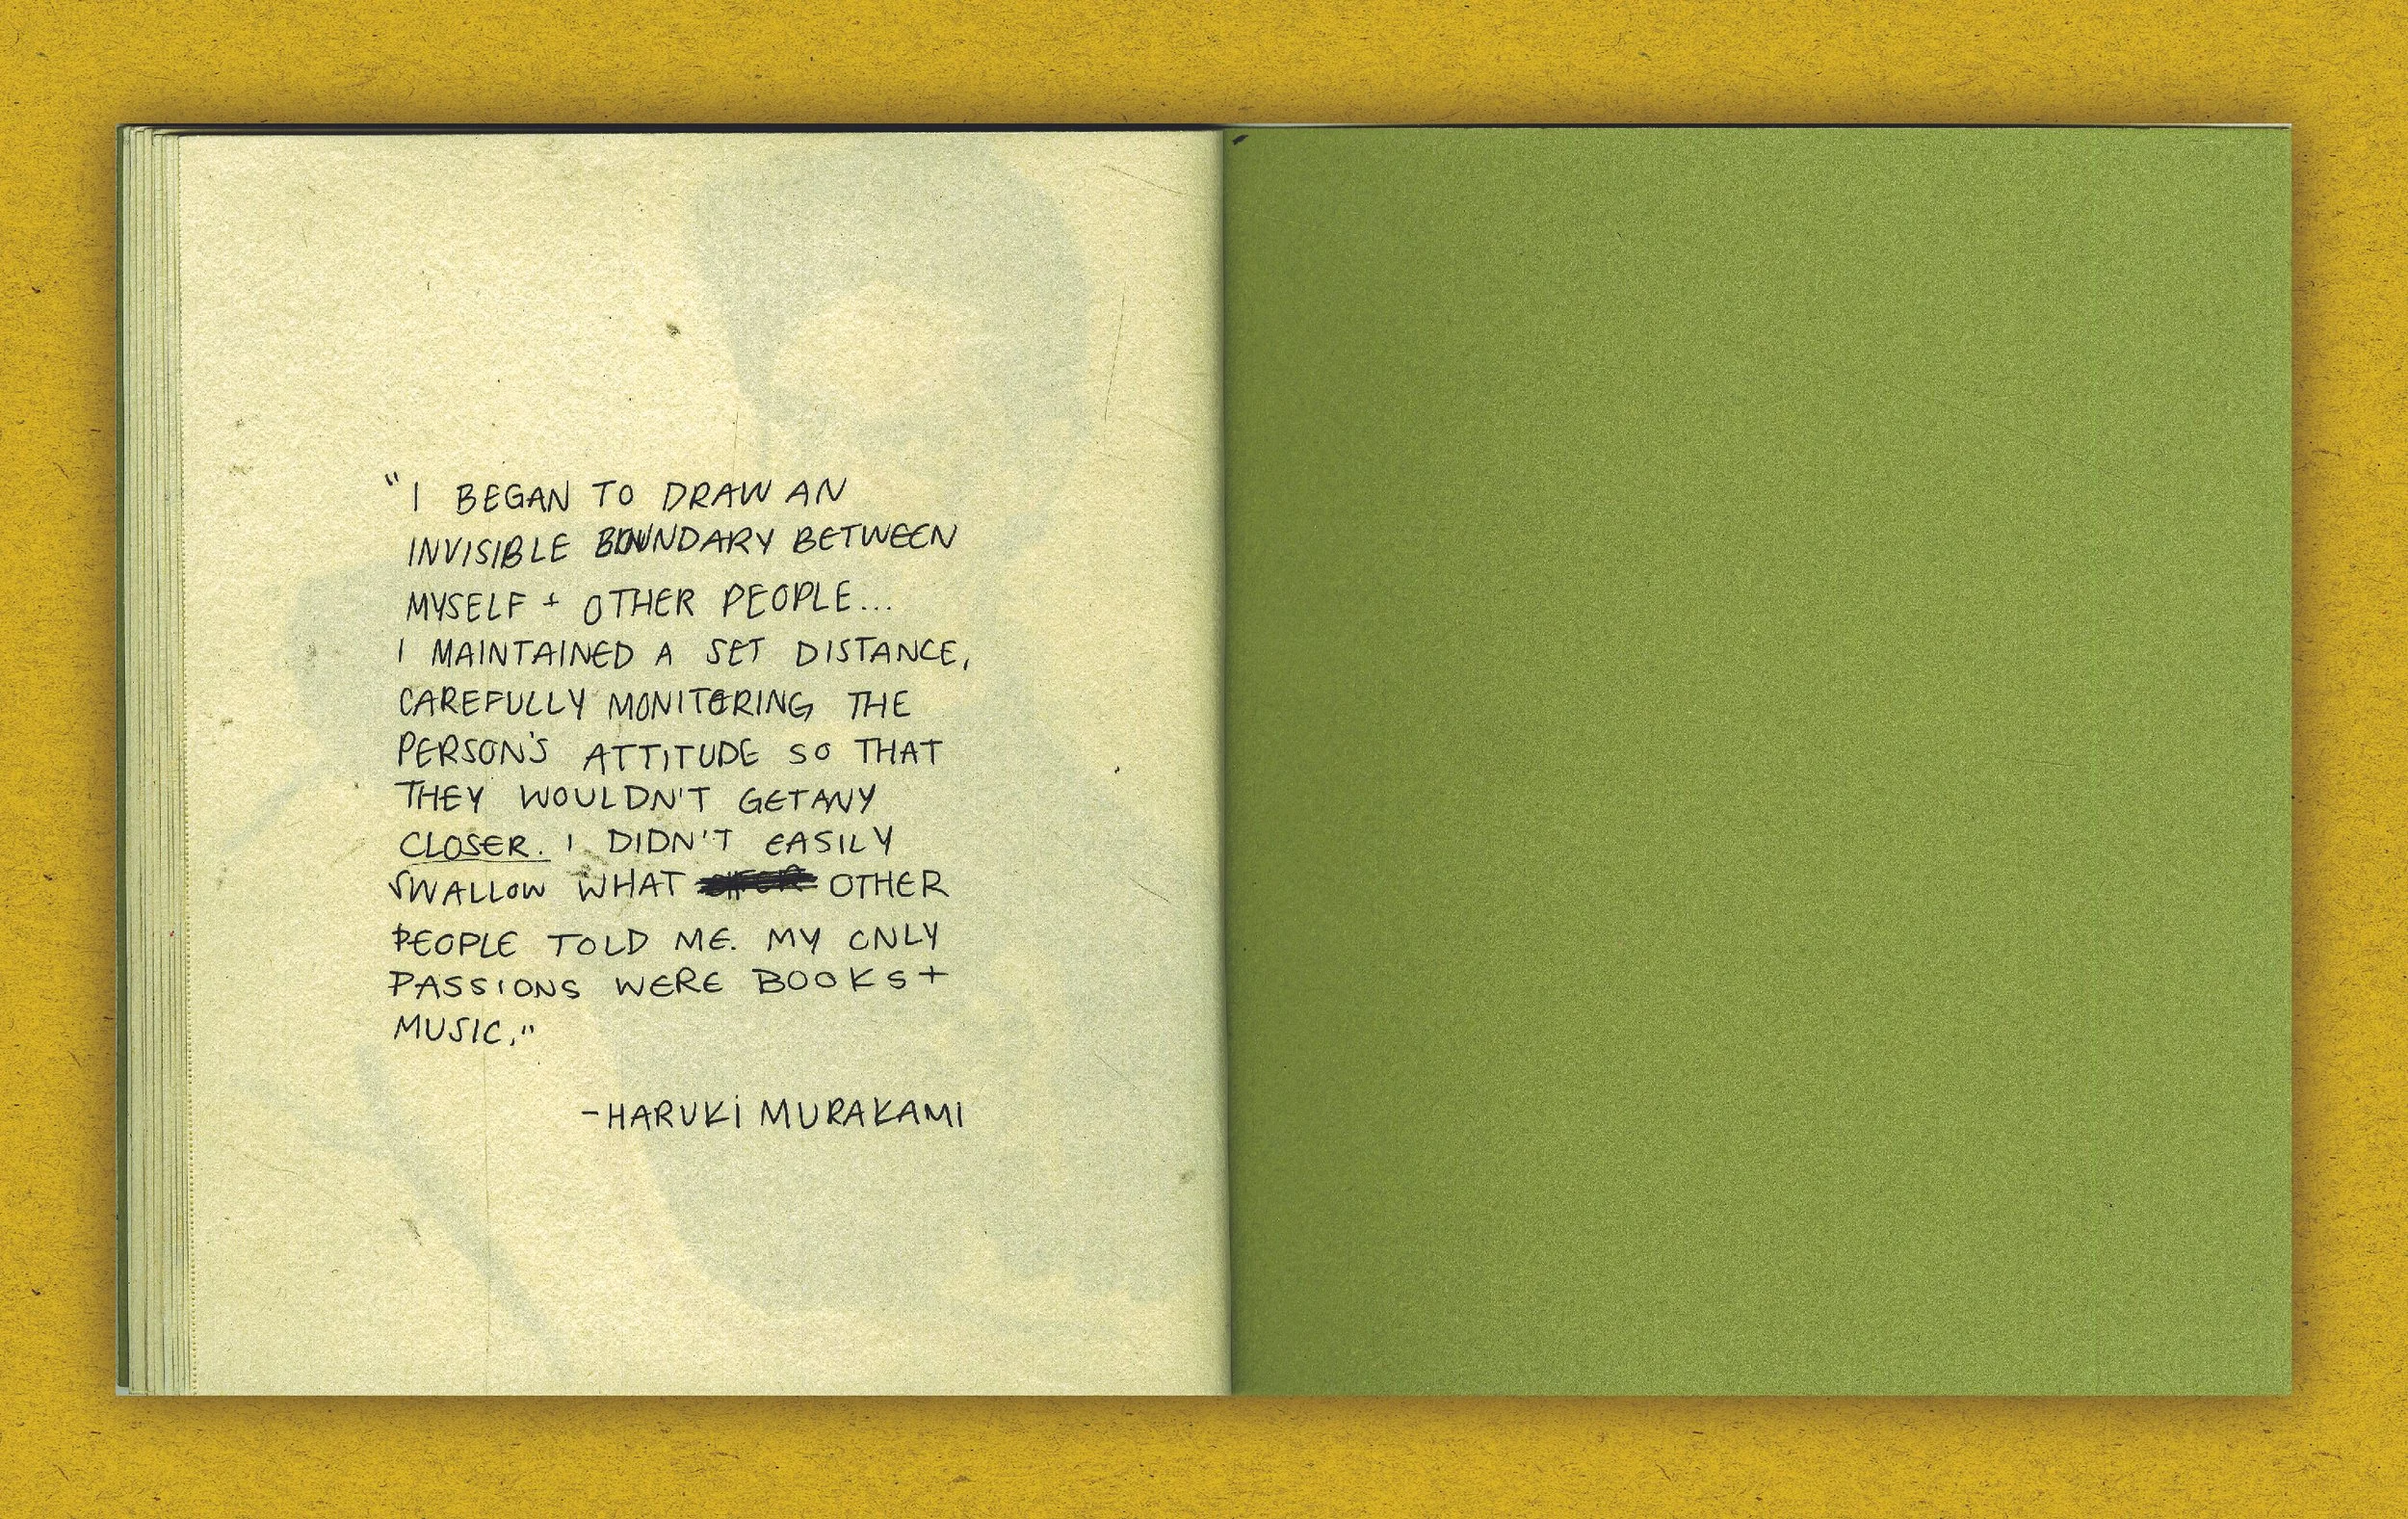 "I BEGAN TO DRAW AN
INVISIBLE BOUNDARY BETWEEN
MYSELF + OTHER PEOPLE...
I MAINTAINED A SET DISTANCE,
CAREFULLY MONITORING THE
PERSON'S ATTITUDE SO THAT
THEY WOULDN'T GET ANY
CLOSER. I DIDN'T EASILY
SWALLOW WHAT OTHER
PEOPLE TOLD ME. MY ONLY
PASSIONS WERE BOOKS +
MUSIC."
-HARUKI MURAKAMI